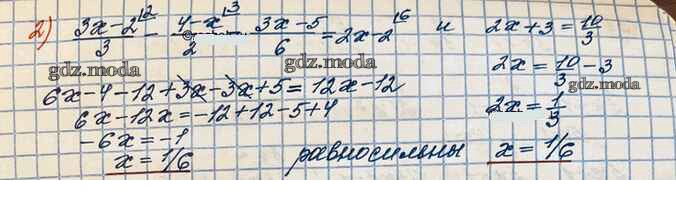 2) (3x-2^{12})/3 - (4-x^{13})/2 - (3x-5)/6 = 2x-2^{16} и 2x+3=10/3
gdz.moda
gdz.moda
2x=10/3-3
gdz.moda
6x-4-12+3x-3x+5=12x-12
6x-12x=-12+12-5+4
2x=1/3
-6x=-1
x=1/6
равносильны x=1/6